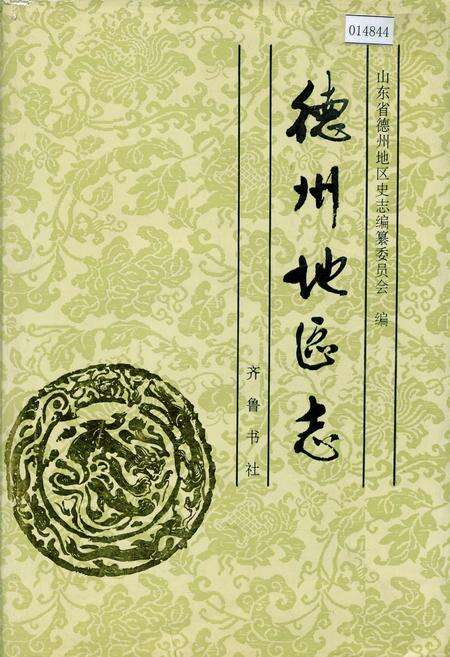 014844
山东省德州地区史志编纂委员会 编
德州地區志
齐鲁书社